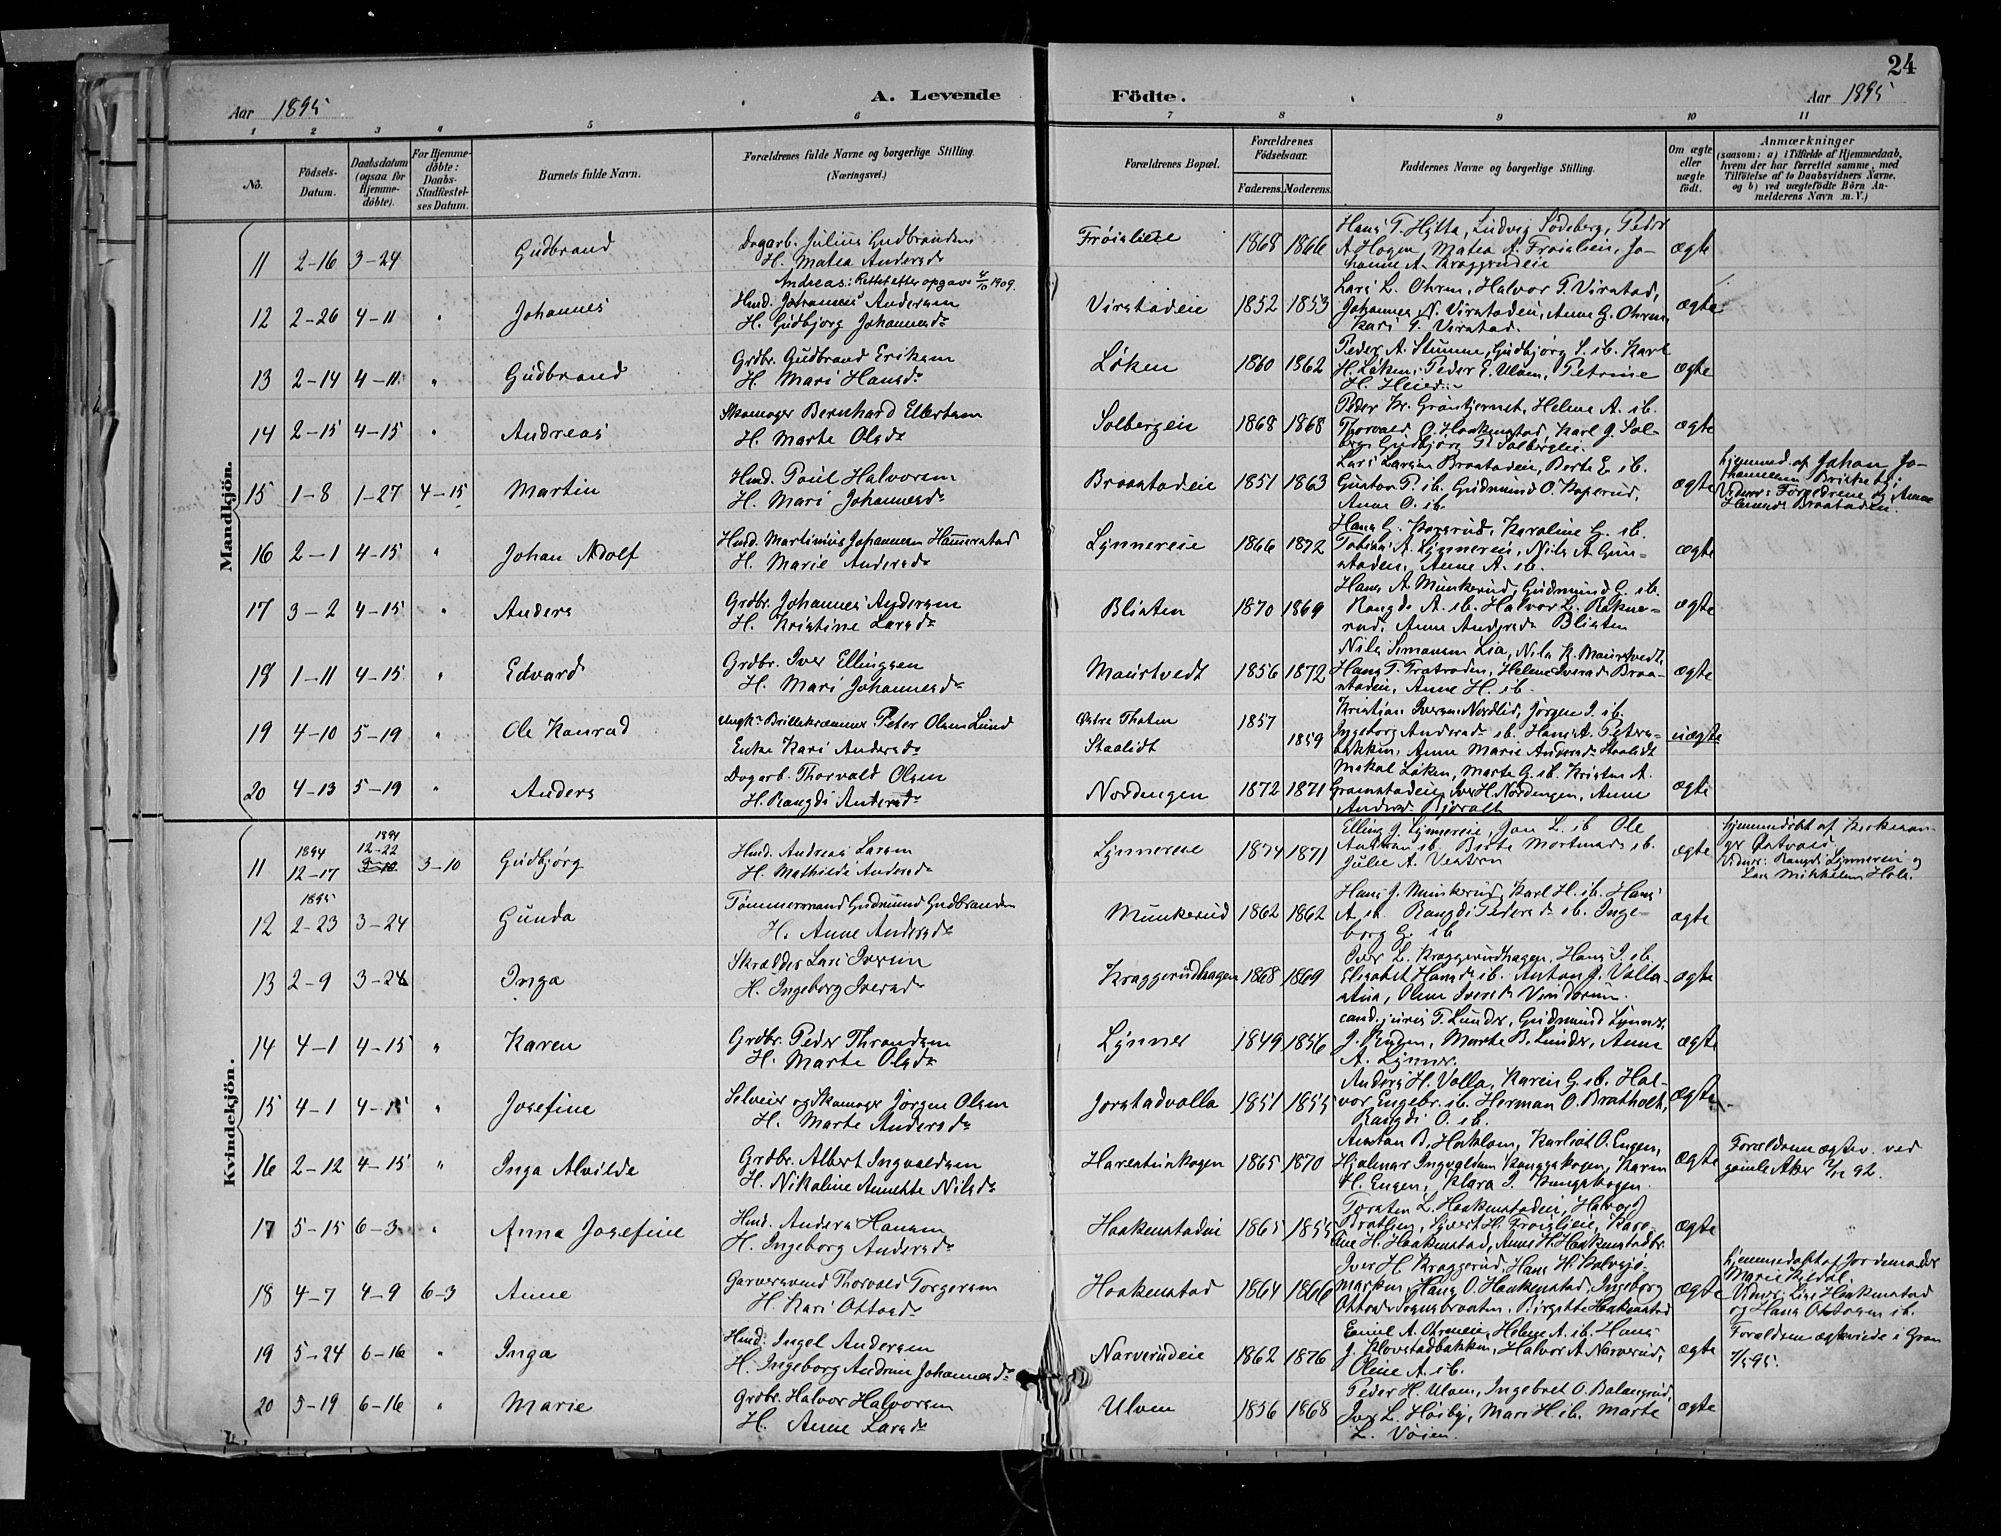 24
Aar 1895
A. Levende
Födte.
Aar 1895
1 2 3 4 5 6 7 8 9 10 11
No.
Födsels-Datum.
Daabsdatum (ogsaa for Hjemme-döbte).
For Hjemme-döbte: Daabs-Stadfæstel-ses Datum.
Barnets fulde Navn.
Forældrenes fulde Navne og borgerlige Stilling.
(Næringsvei.)
Forældrenes Bopæl.
Forældrenes Födselsaar.
Faderens. Moderens.
Faddernes Navne og borgerlige Stilling.
Om ægte eller uægte födt.
Anmærkninger
(saasom: a) i Tilfælde af Hjemmedaab,
hvem der har forrettet samme, med
Tilföielse af to Daabsvidners Navne,
og b) ved uægtefödte Börn An-
melderens Navn m. V.)
Mandkjön.
11 2-16 3-24 Gudbrand
Dagarb. Julius Gudbrandsen
H. Matea Andersdr
Frøislieie 1868 1866
Hans T. Hytta, Ludvig Södeberg, Peder
A. Hagen, Matea A. Frøislieie, Jo-
hanne A. Kraggrudeie
ægte
Andreas: Rettet efter opgave 1909.
12 2-26 4-11 " Johannes
Hmd. Johannes Andersen
H. Gudbjörg Johannesdr
Virstadeie 1852 1853
Lars L. Ohren, Halvor T. Virstad,
Johannes N. Virstadeie, Anne G. Ohren,
Kari T. Virstad.
ægte
13 2-14 4-11 " Gudbrand
Grdbr. Gudbrand Eriksen
H. Mari Hansdr
Løken 1860 1862
Peder A. Stumne, Gudbjørg S. ib. Karl
H. Løken, Peder E. Ulven, Petrine
H. Heier
ægte
14 2-15 4-15 " Andreas
Skomager Bernhard Ellertsen
H. Marte Olsdr
Solbergeie 1868 1868
Peder Kr. Grøntjernet, Helene A. ib.
Thorvald O. Haakenstad, Karl J. Sol-
berg, Gudbjörg T. Solbergeie
ægte
15 1-8 1-27 4-15 Martin
Hmd. Poul Halvorsen
H. Mari Johannesdr
Braastadeie 1851 1863
Lars Larsen Braatadeie, Berte E. ib.
Gustav P. ib. Gudmund O. Koperud,
Anne O. ib.
ægte
hjemmed. af Johan Jo-
hannesen
Vidner: Forældrene og Anne
16 2-1 4-15 " Johan Adolf
Hmd. Martinius Johannesen Hammerstad
H. Marie Andersdr
Lynnereie 1866 1872
Hans G. Korsrud, Karoline G. ib.
Tobias A. Lynnereie, Nils A. Grin-
staden, Anne A. ib.
ægte
17 3-2 4-15 " Anders
Grdbr. Johannes Andersen
H. Kristine Larsdr
Blisten 1870 1869
Hans A. Munkerud, Gudmund G. ib.
Rangdi A. ib. Halvor L. Rakne-
rud, Anne Andersdr Blisten
ægte
18 1-11 4-15 " Edvard
Grdbr. Iver Ellingsen
H. Mari Johannesdr
Maurtvedt 1856 1872
Nils Simonsen Lia, Nils K. Maurtvedt,
Hans T. Helene Iversdr Braa-
stadeie, Anne H. ib.
ægte
19 4-10 5-19 " Ole Konrad
Ungk. Brillekræmmer Peter Olsen Lund
Enke Kari Andersdr
Østre Thoten 1857
Staalidt 1859
Kristian Iversen Nordlid, Jörgen J. ib.
Ingeborg Andersdr ib. Hans A. Peters-
bakken, Anne Marie Andersdr Staalidt
uægte
20 4-13 5-19 " Anders
Dagarb. Thorvald Olsen
H. Rangdi Andersdr
Nordengen 1872 1871
Mikal Løken, Marte G. ib. Kristen A.
Iver H. Nordengen, Anne
Andersdr
ægte
Kvindekjön.
11 1894 12-17 1894 12-22 3-10 Gudbjørg
Hmd. Andreas Larsen
H. Mathilde Andersdr
Lynnereie 1874 1871
Elling J. Lynnereie, Jon L. ib. Ole
Berte ib.
Julie A.
ægte
hjemmedöbt af Kirkesan-
ger Østvold
Vidner: Rangdi Lynnereie og
Lars Mikkelsen Hole.
12 1895 2-23 3-24 Gunda
Tømmermand Gudmund Gudbrandsen
H. Anne Andersdr
Munkerud 1862 1862
Hans J. Munkerud, Karl H. ib. Hans
A. ib. Rangdi Pedersdr ib. Inge-
borg G. ib
ægte
13 2-9 3-24 Inga
Skrædder Lars Iversen
H. Ingeborg Iversdr
Kraggerudhagen 1868 1869
Iver L. Kraggerudhagen, Hans I. ib.
Elisabet Hansdr ib. Anton J. Volla-
stua, Oline Iversdr
ægte
14 4-1 4-15 " Karen
Grdbr. Peder Throndsen
H. Marte Olsdr
Lynner 1849 1856
cand. juris T. Lunder, Gudmund Lynner,
J. Rugen, Marte B. Lunder, Anne
A. Lynner.
ægte
15 4-1 4-15 " Josefine
Selveier og Skomager Jørgen Olsen
H. Marte Andersdr
Jorstadvolla 1851 1855
Anders H. Volla, Karen G. ib. Hal-
vor Engebr. ib. Herman O. Bratholt,
Rangdi O. ib.
ægte
16 2-12 4-15 " Inga Alvilde
Grdbr. Albert Ingvaldsen
H. Nikoline Annette Nilsdr
Harestuskogen 1865 1870
Anstan B. Karl O. Engen,
Hjalmar Ingvaldsen Kongsskogen, Karen
H. Engen, Klara I. Kongsskogen.
ægte
Forældrene ægtev. ved
gamle Aker 92.
17 5-15 6-3 " Anna Josefine
Hmd. Anders Hansen
H. Ingeborg Andersdr
Haakenstadeie 1865 1855
Torsten L. Haakenstadeie, Halvor
Sivert H. Frøislieie, Kare-
line H. Haakenstad, Anne H. Haakenstadbr.
ægte
18 4-7 4-9 6-3 Anne
Garversvend Thorvald Torgersen
H. Kari Ottosdr
Haakenstad 1864 1866
Iver H. Kraggerud, Hans H. Kalvsjø-
marken, Hans O. Haakenstad, Ingeborg
Ottosdr Sognsbraaten, Birgitte Haakenstad
ægte
hjemmedøbt af Jordemoder
Marie
Vidner: Lise Haakenstad
og Hans Ottosen ib.
19 5-24 6-16 " Inga
Hmd. Ingel Andersen
H. Ingeborg Andrine Johannesdr
Narverudeie 1862 1876
Emil A. Ohreneie, Helene A. ib. Hans
J. Klovstadbakken, Halvor A. Narverud,
Oline A. ib.
ægte
Forældrene ægteviede i Gran
95.
20 5-19 6-16 " Marie
Grdbr. Halvor Halvorsen
H. Anne Larsdr
Ulven 1856 1868
Peder H. Ulven, Ingebret O. Balangrud,
Iver L. Høiby, Mari H. ib. Marte
L. Vøien.
ægte